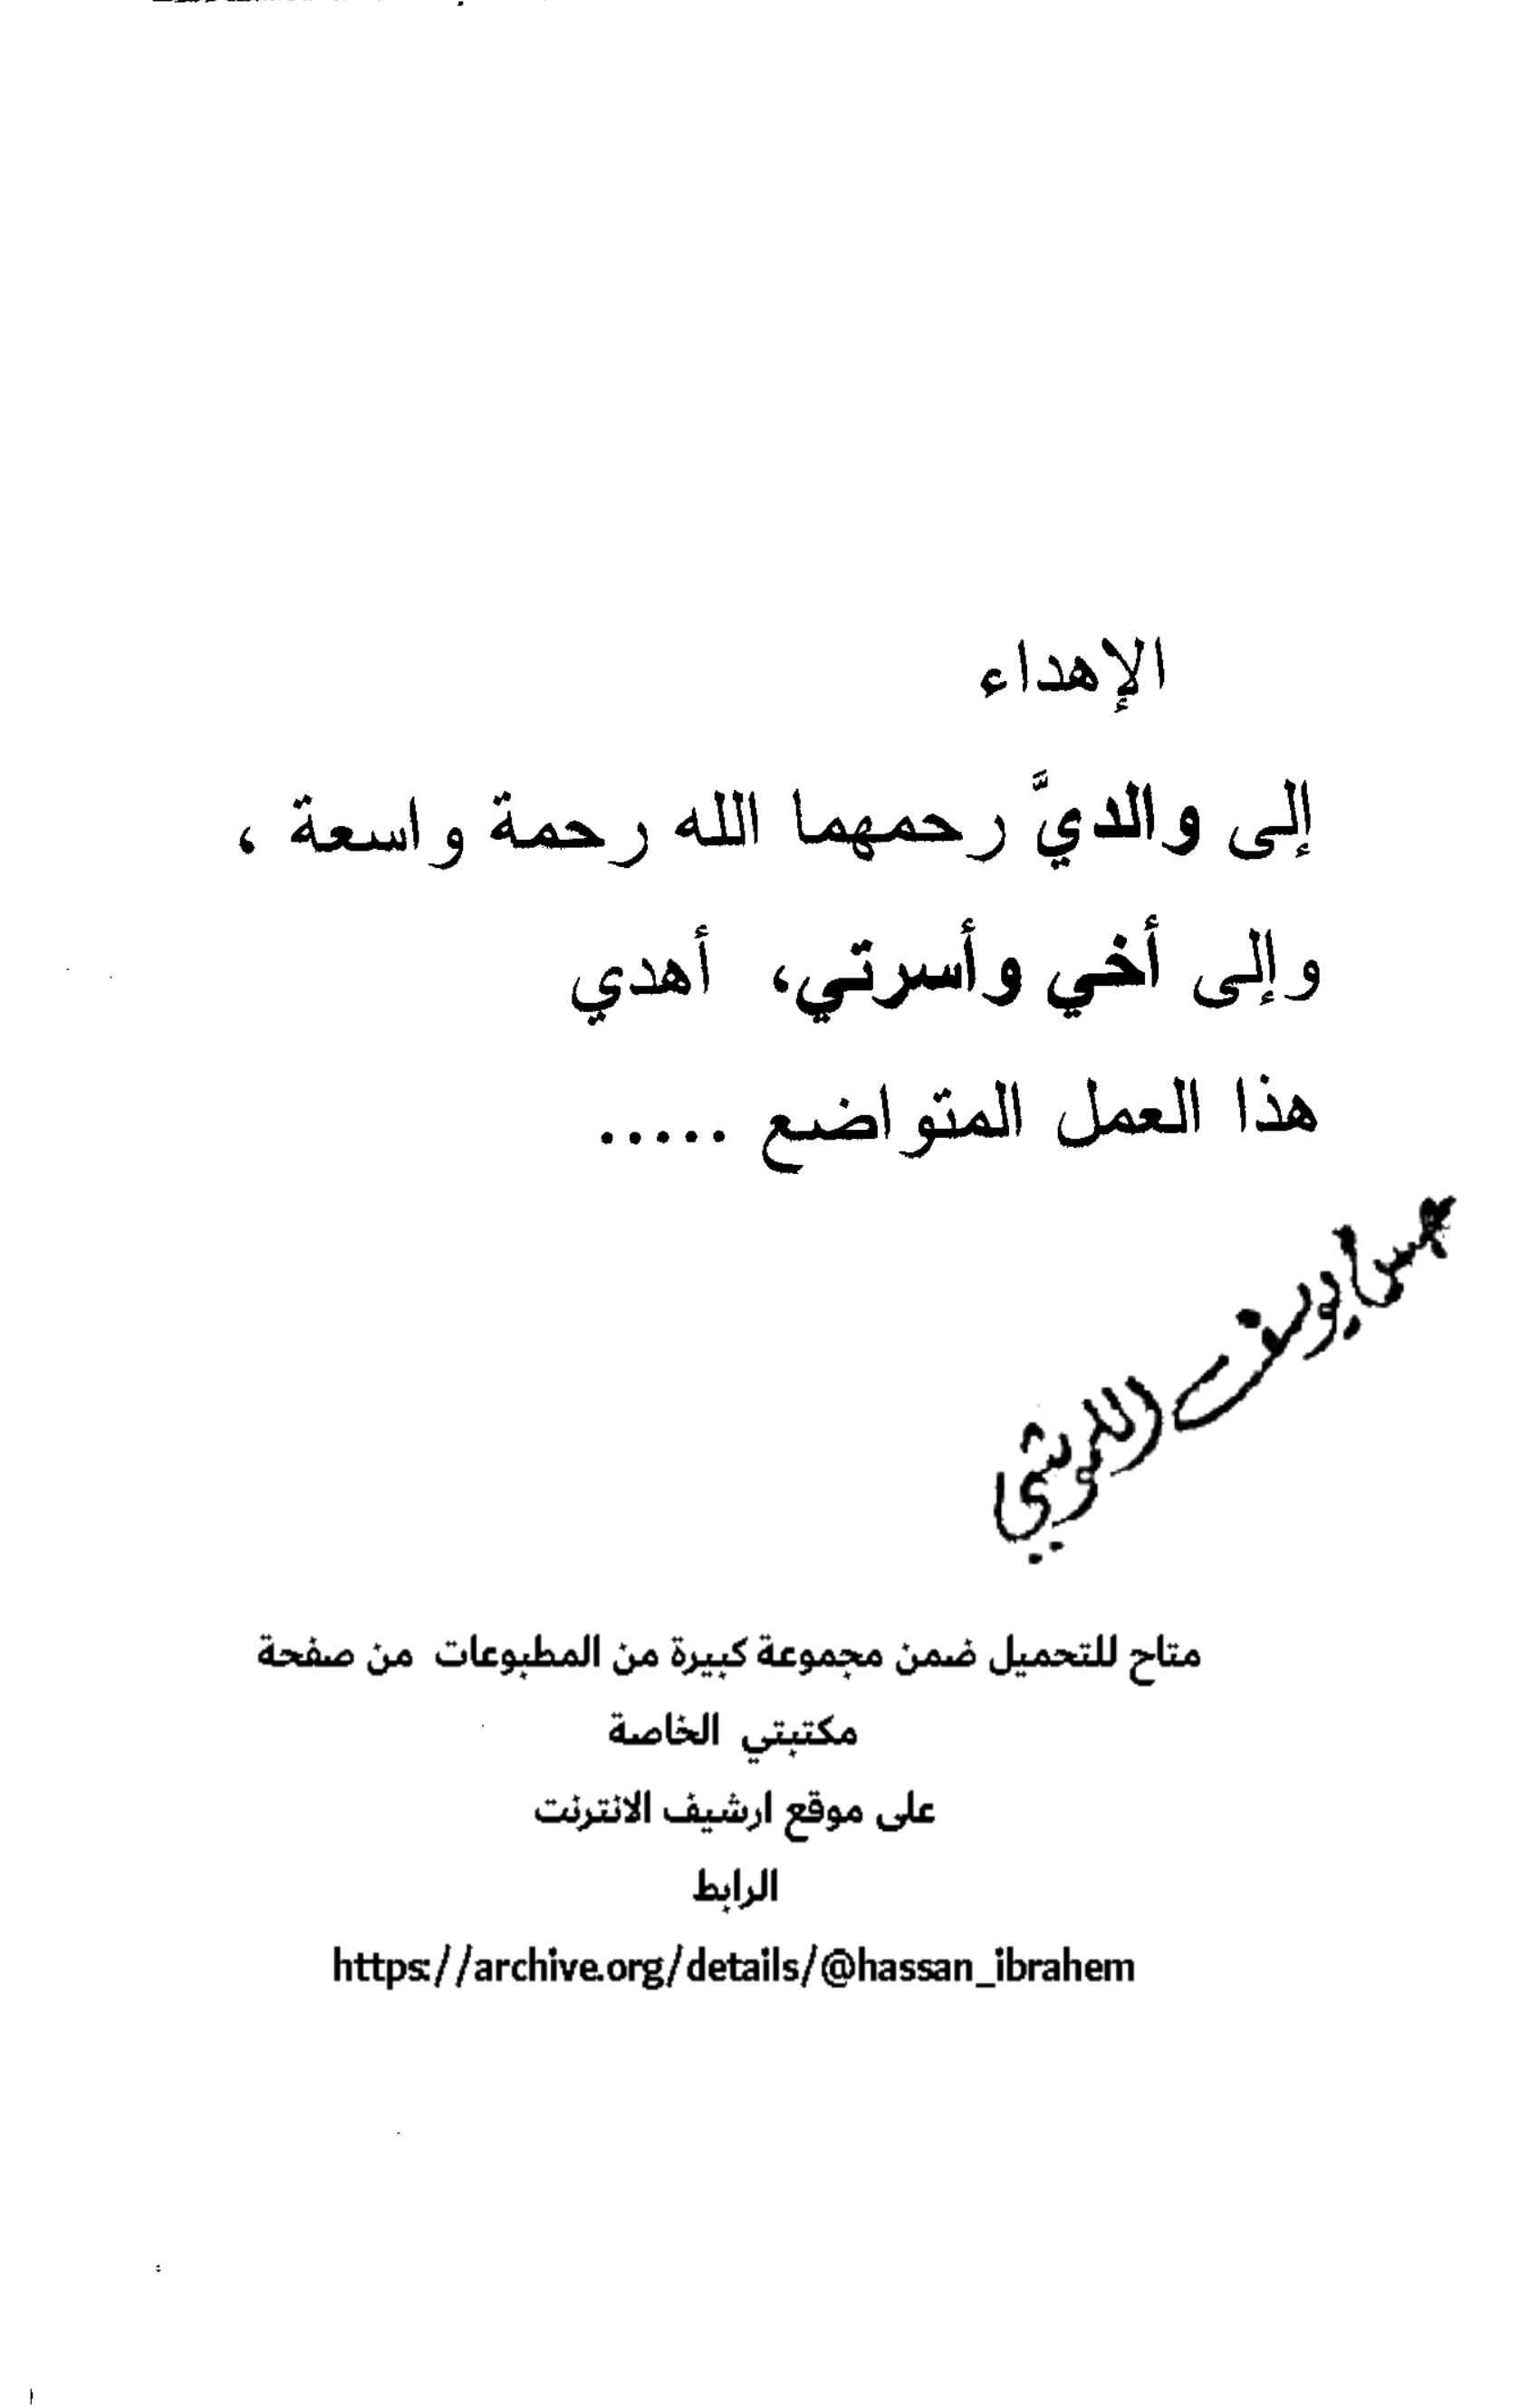 الإهداء
إلى والديَّ رحمهما الله رحمة واسعة ،
وإلى أخي وأسرتي، أهدي
هذا العمل المتواضع .....
يوسف
متاح للتحميل ضمن مجموعة كبيرة من المطبوعات من صفحة
مكتبتي الخاصة
على موقع ارشيف الانترنت
الرابط
https://archive.org/details/@hassan_ibrahem